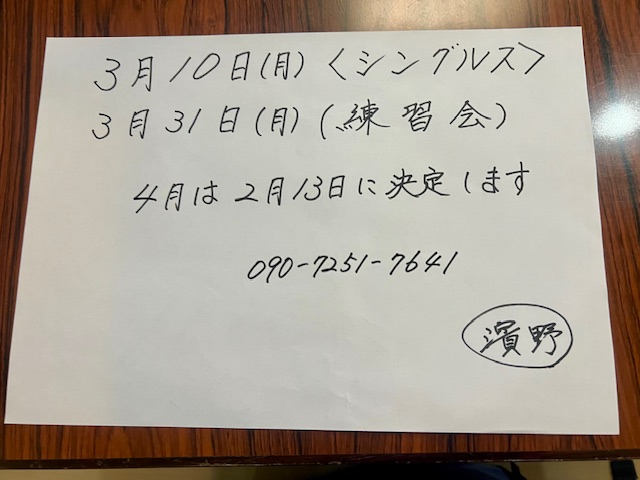 3月10日(月)〈シングルス〉
3月31日(月)(練習会)
4月は2月13日に決定します
090-7251-7641
濱野